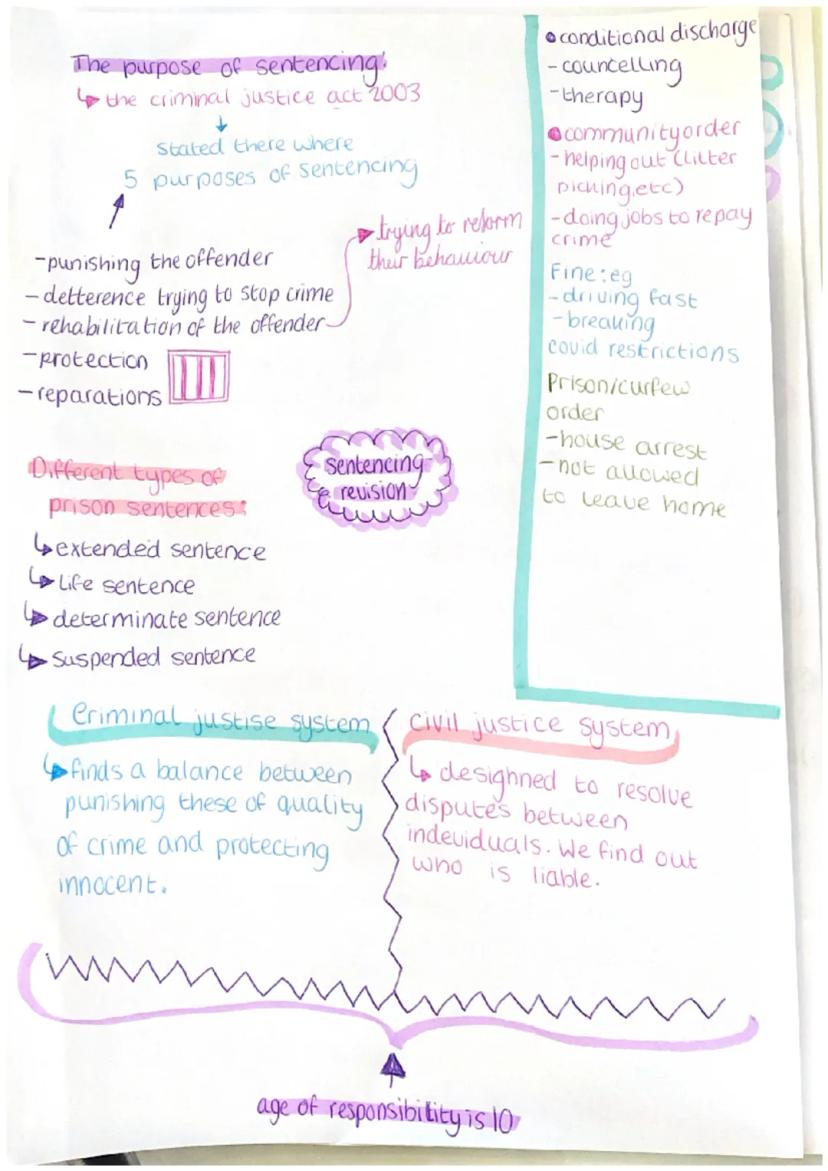 The purpose of sentencing:
↳ the criminal justice act 2003
↓
stated there where
5 purposes of sentencing
-punishing the offender
- detterence trying to stop crime
- rehabilitation of the offender
trying to reform
their behaviour
-protection
-reparations
sentencing
revision
Different types of
prison sentences:
↳extended sentence
↳Life sentence
↳determinate sentence
↳suspended sentence
•conditional discharge
- councelling
-therapy
•community order
-helping out (litter
picking,etc)
-doing jobs to repay
crime
Fine:eg
-driving fast
-breaking
covid restrictions
Prison/curfew
order
-house arrest
-not allowed
to leave home
Criminal justise system
↳finds a balance between
punishing these of quality
of crime and protecting
innocent.
civil justice system
↳ designned to resolve
disputes between
indeviduals. We find out
who is liable.
age of responsibility is 10